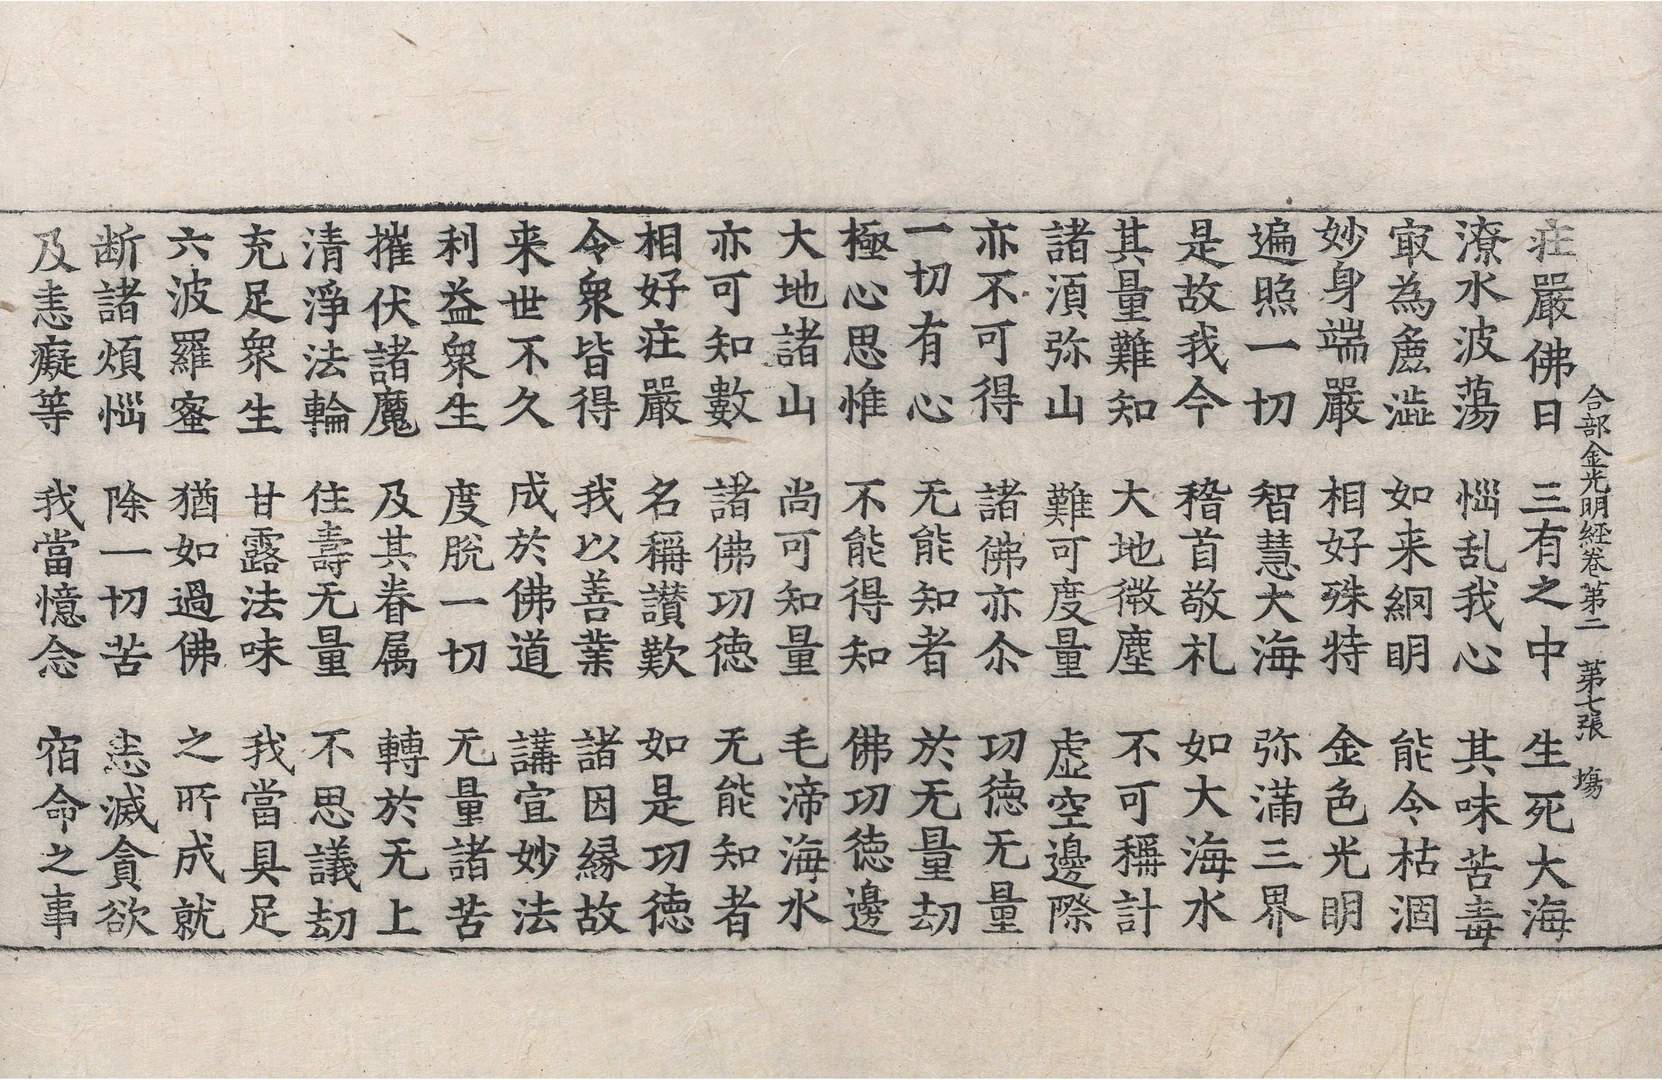 合部金光明経卷第二 第七張 塲
荘嚴佛日 三有之中 生死大海
潦水波蕩 惱乱我心 其味苦毒
㝡為麁澁 如来網明 能令枯涸
妙身端嚴 相好殊特 金色光明
遍照一切 智慧大海 弥滿三界
是故我今 稽首敬礼 如大海水
其量難知 大地微塵 不可稱計
諸須弥山 難可度量 虚空邊際
亦不可得 諸佛亦尒 功徳无量
一切有心 无能知者 於无量劫
極心思惟 不能得知 佛功徳邊
大地諸山 尚可知量 毛渧海水
亦可知數 諸佛功徳 无能知者
相好荘嚴 名稱讃歎 如是功徳
令衆皆得 我以善業 諸因縁故
来世不久 成於佛道 講宣妙法
利益衆生 度脫一切 无量諸苦
摧伏諸魔 及其眷属 轉於无上
清淨法輪 住壽无量 不思議劫
充足衆生 甘露法味 我當具足
六波羅蜜 猶如過佛 之所成就
断諸煩惱 除一切苦 悉滅貪欲
及恚癡等 我當憶念 宿命之事